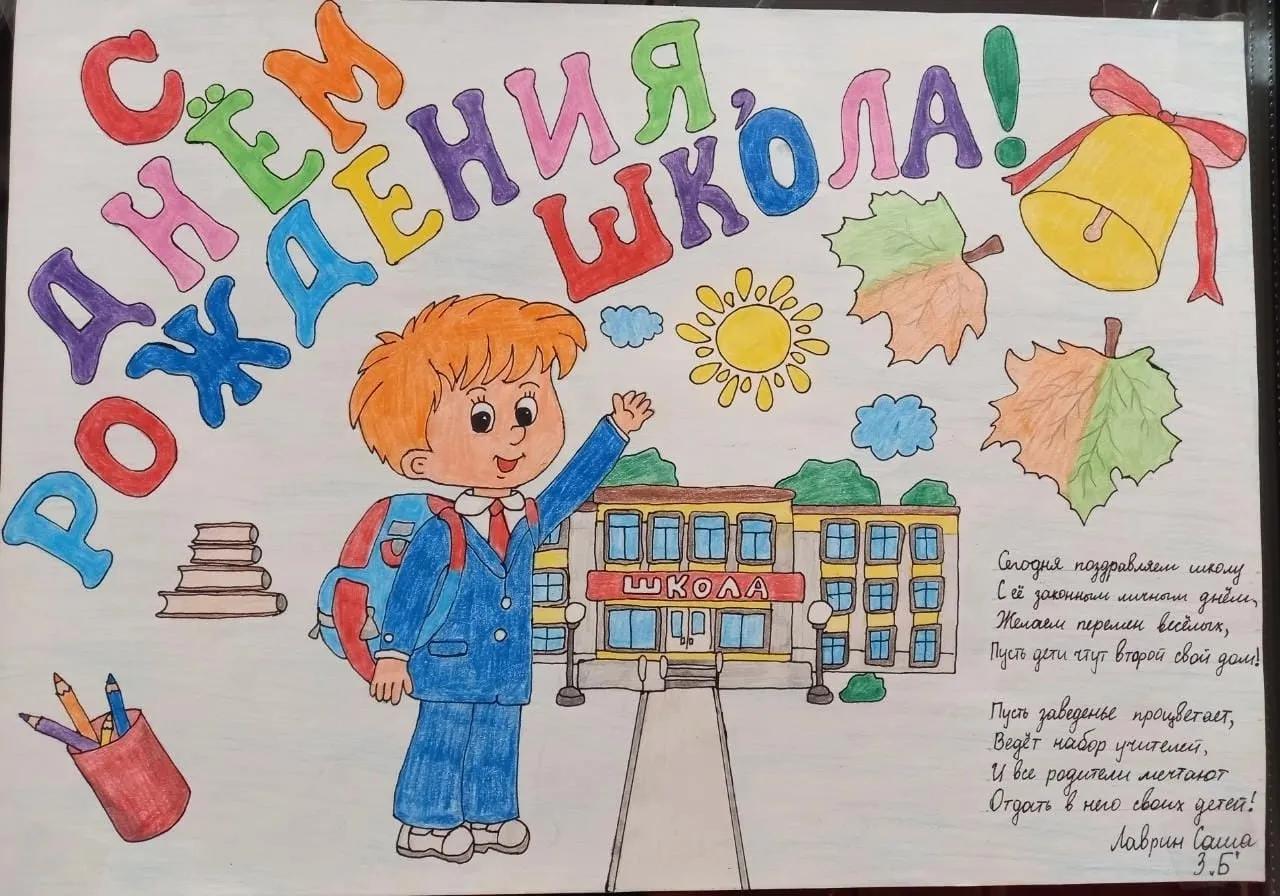 С
ДНЁМ
РОЖДЕНИЯ
ШКОЛА!
ШКОЛА
Сегодня поздравляем школу
С её законным личным днём,
Желаем перемен весёлых,
Пусть дети чтут второй свой дом!
Пусть заведенье процветает,
Ведёт набор учителей,
И все родители мечтают
Отдать в него своих детей!
Лаврин Саша
3 "Б"